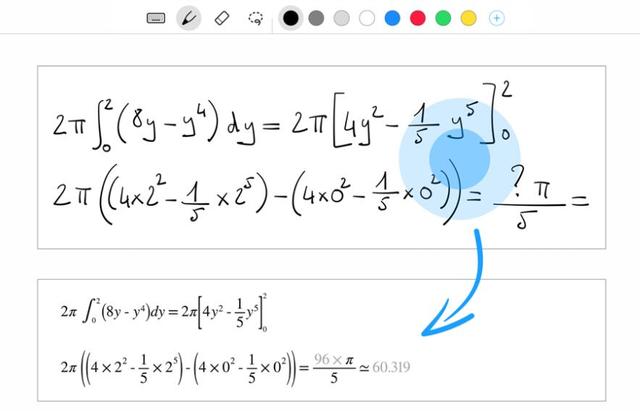 2π∫₀²(8y-y⁴)dy=2π[4y²-1/5 y⁵]₀²
2π((4×2²-1/5×2⁵)-(4×0²-1/5×0²))=?π/5=
2π∫₀²(8y-y⁴)dy=2π[4y²-1/5y⁵]₀²
2π((4×2²-1/5×2⁵)-(4×0²-1/5×0²))=96×π/5≃60.319